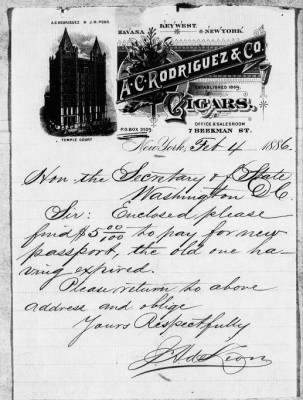 A.C. RODRIGUEZ & J.M. PEÑO.
HAVANA KEY WEST & NEW YORK.
A·C·RODRIGUEZ & CO.
ESTABLISHED 1864.
CIGARS,
OFFICE & SALESROOM
P.O. BOX 3509. 7 BEEKMAN ST.
TEMPLE COURT
New York, Feb 4 1886.
Hon. the Secretary of State
Washington D.C.
Sir: Enclosed please
find $5 00/100 to pay for new
passport, the old one ha-
ving expired.
Please return to above
address and oblige
Yours Respectfully